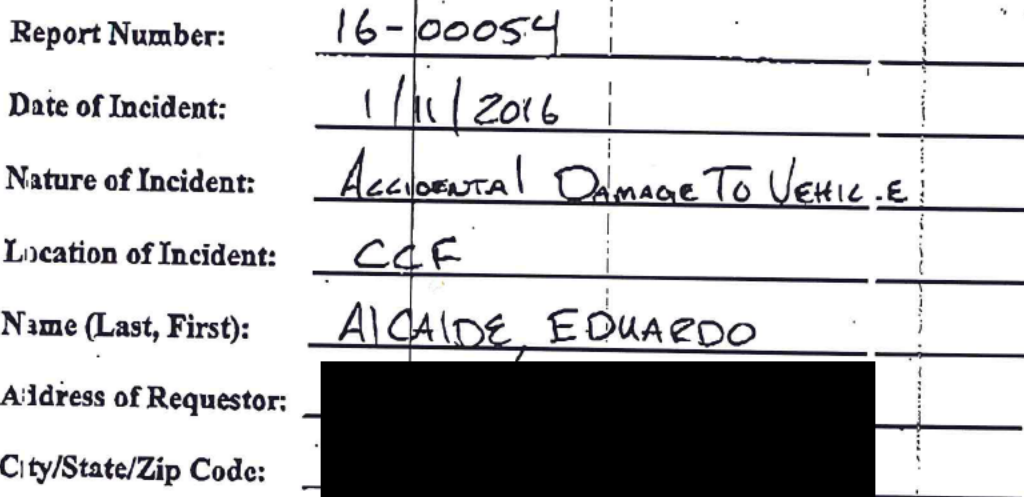 Report Number: 16-00054
Date of Incident: 1/11/2016
Nature of Incident: Accidental Damage To Vehicle
Location of Incident: CCF
Name (Last, First): Alcaide, Eduardo
Address of Requestor:
City/State/Zip Code: